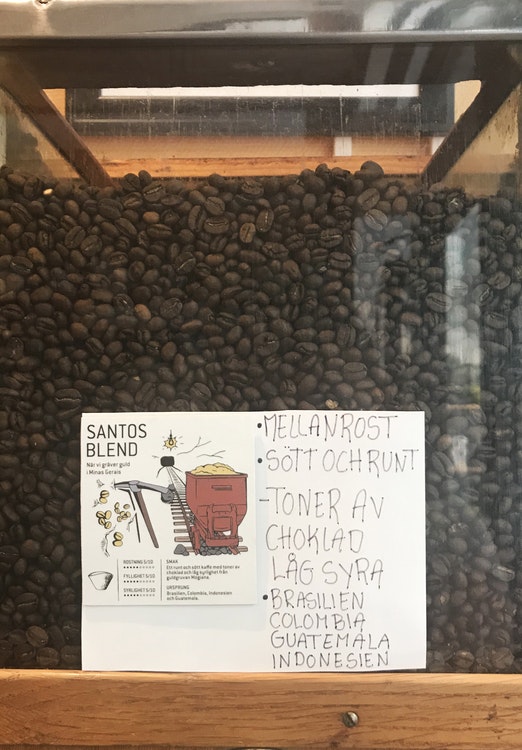 SANTOS
BLEND
När vi gräver guld
i Minas Gerais
ROSTNING 5/10
FYLLIGHET 5/10
SYRLIGHET 5/10
SMAK
Ett runt och sött kaffe med toner av
choklad och låg syrlighet från
guldgruvan Mogiana.
URSPRUNG
Brasilien, Colombia, Indonesien
och Guatemala.
• MELLANROST
• SÖTT OCH RUNT
– TONER AV
CHOKLAD
LÅG SYRA
• BRASILIEN
COLOMBIA
GUATEMALA
INDONESIEN